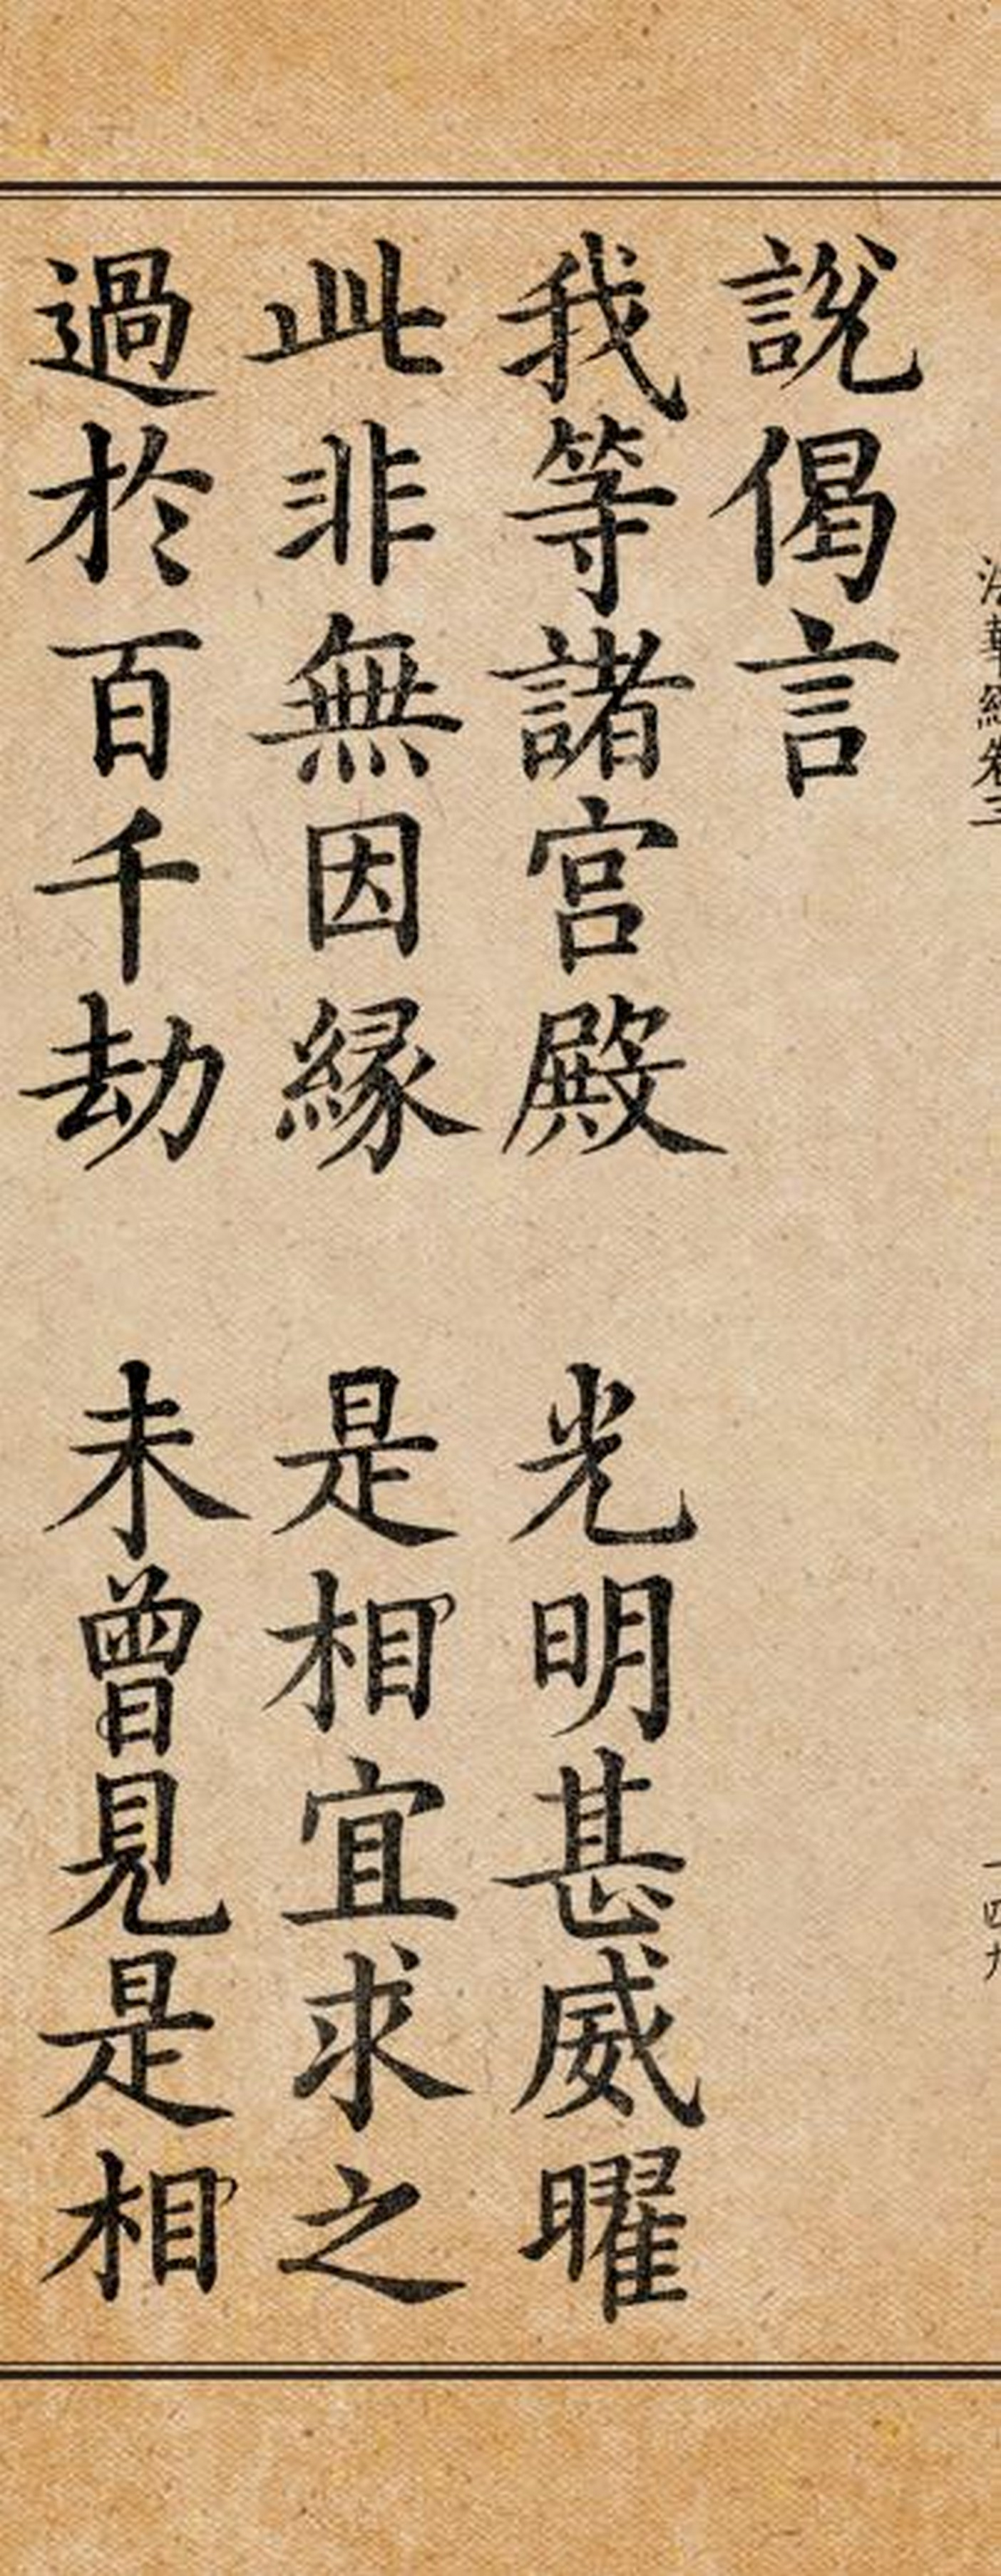 法華經卷三
一四九
說偈言
我等諸宮殿 光明甚威曜
此非無因緣 是相宜求之
過於百千劫 未曾見是相